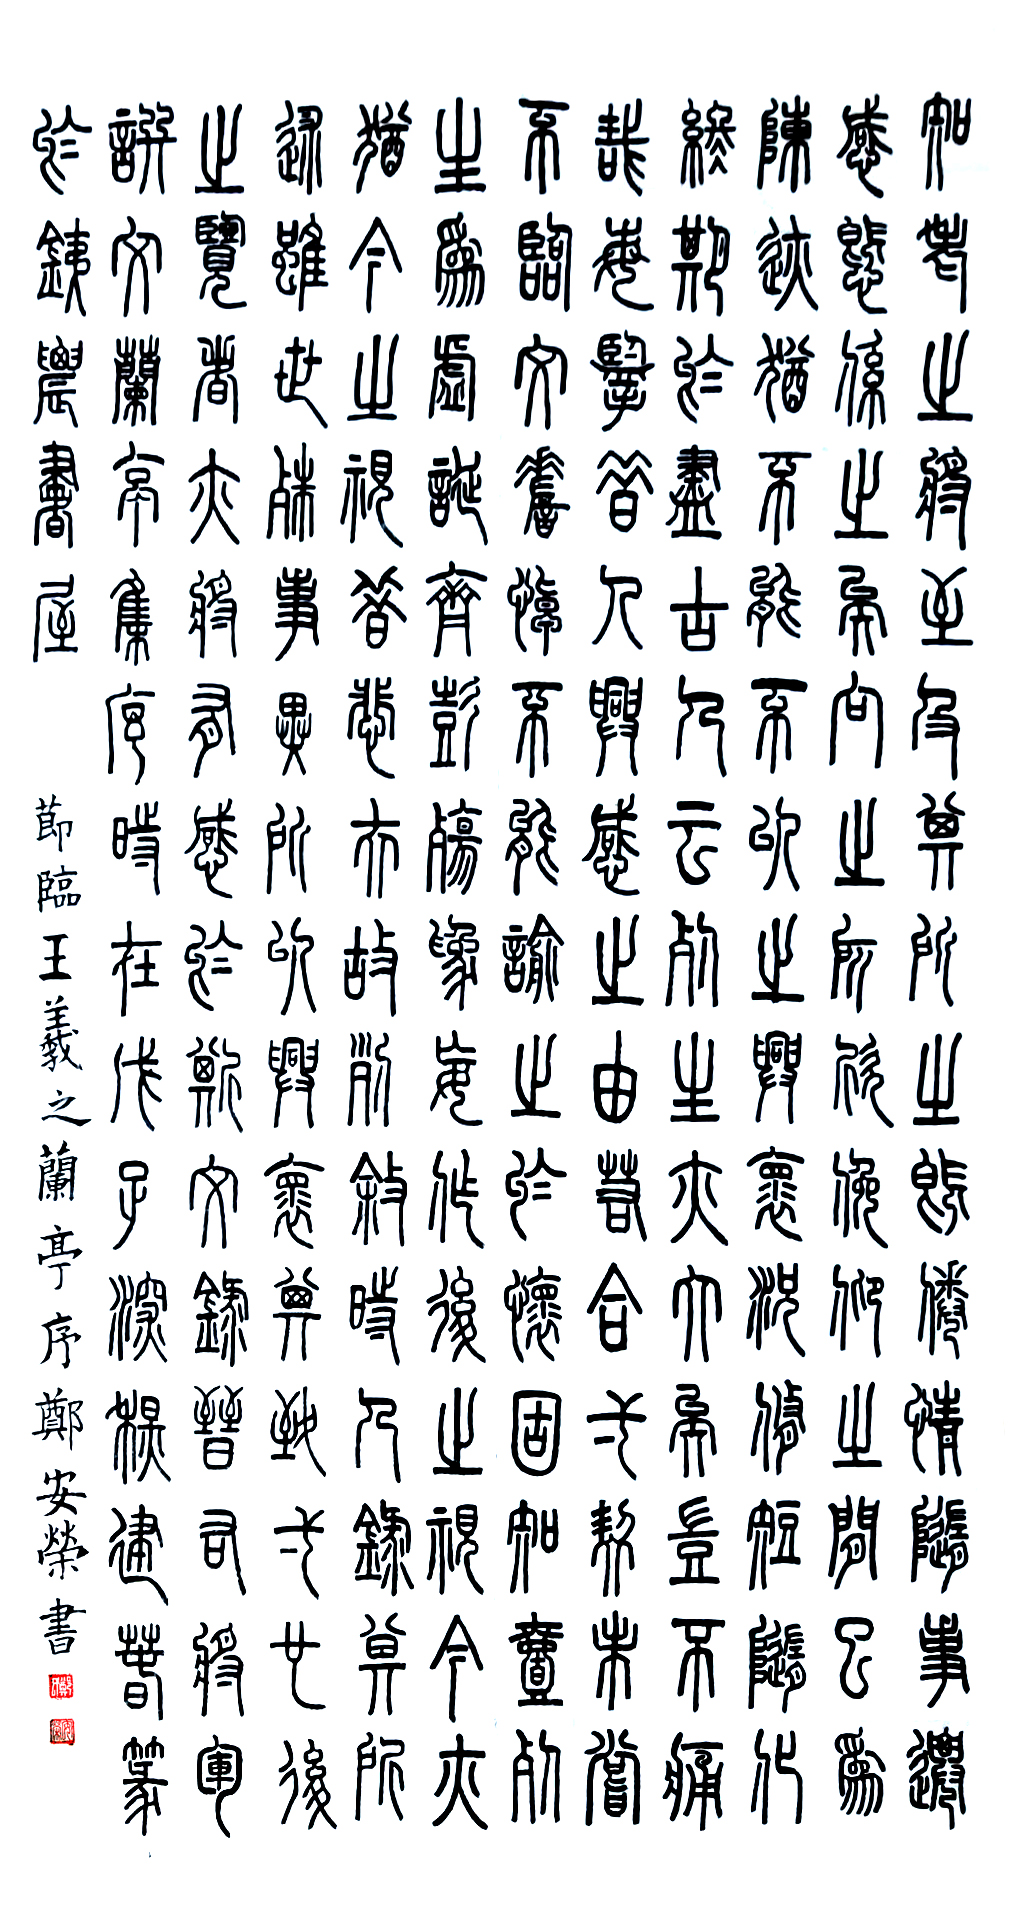 知老之將至及其所之既倦情隨事遷
感慨係之矣向之所欣俛仰之間已為
陳迹猶不能不以之興懷況脩短隨化
終期於盡古人云死生亦大矣豈不痛
哉每擥昔人興感之由若合弌契未嘗
不臨文嗟悼不能諭之於懷固知壹死
生為虛誕齊彭殤為妄作後之視今亦
猶今之視昔悲夫故列敘時人錄其所
述雖世殊事異所以興懷其致弌也後
之覽者亦將有感於斯文錄晉右將軍
譔文蘭亭集序時在戊子深秋建春篆
於銕農書屋
節臨王羲之蘭亭序鄭安榮書